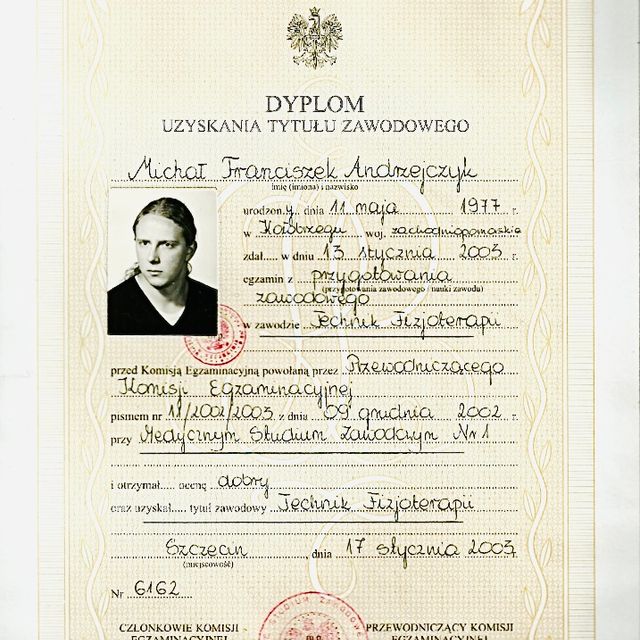 DYPLOM
UZYSKANIA TYTUŁU ZAWODOWEGO
Michał Franciszek Andrzejczyk
imię (imiona) i nazwisko
urodzon.y. dnia 11 maja 1977 r.
w Kołobrzegu woj. zachodniopomorskie
zdał..... w dniu 13 stycznia 2003 r.
egzamin z przygotowania
(przygotowania zawodowego / nauki zawodu)
zawodowego
w zawodzie Technik Fizjoterapii
przed Komisją Egzaminacyjną powołaną przez Przewodniczącego
Komisji Egzaminacyjnej
pismem nr 11/2002/2003 z dnia 09 grudnia 2002 r.
przy Medycznym Studium Zawodowym Nr 1
i otrzymał..... ocenę dobry
oraz uzyskał..... tytuł zawodowy Technik Fizjoterapii
Szczecin, dnia 17 stycznia 2003 r.
(miejscowość)
Nr 6162
CZŁONKOWIE KOMISJI
EGZAMINACYJNEJ
PRZEWODNICZĄCY KOMISJI
EGZAMINACYJNEJ
STUDIUM ZAWODOWE